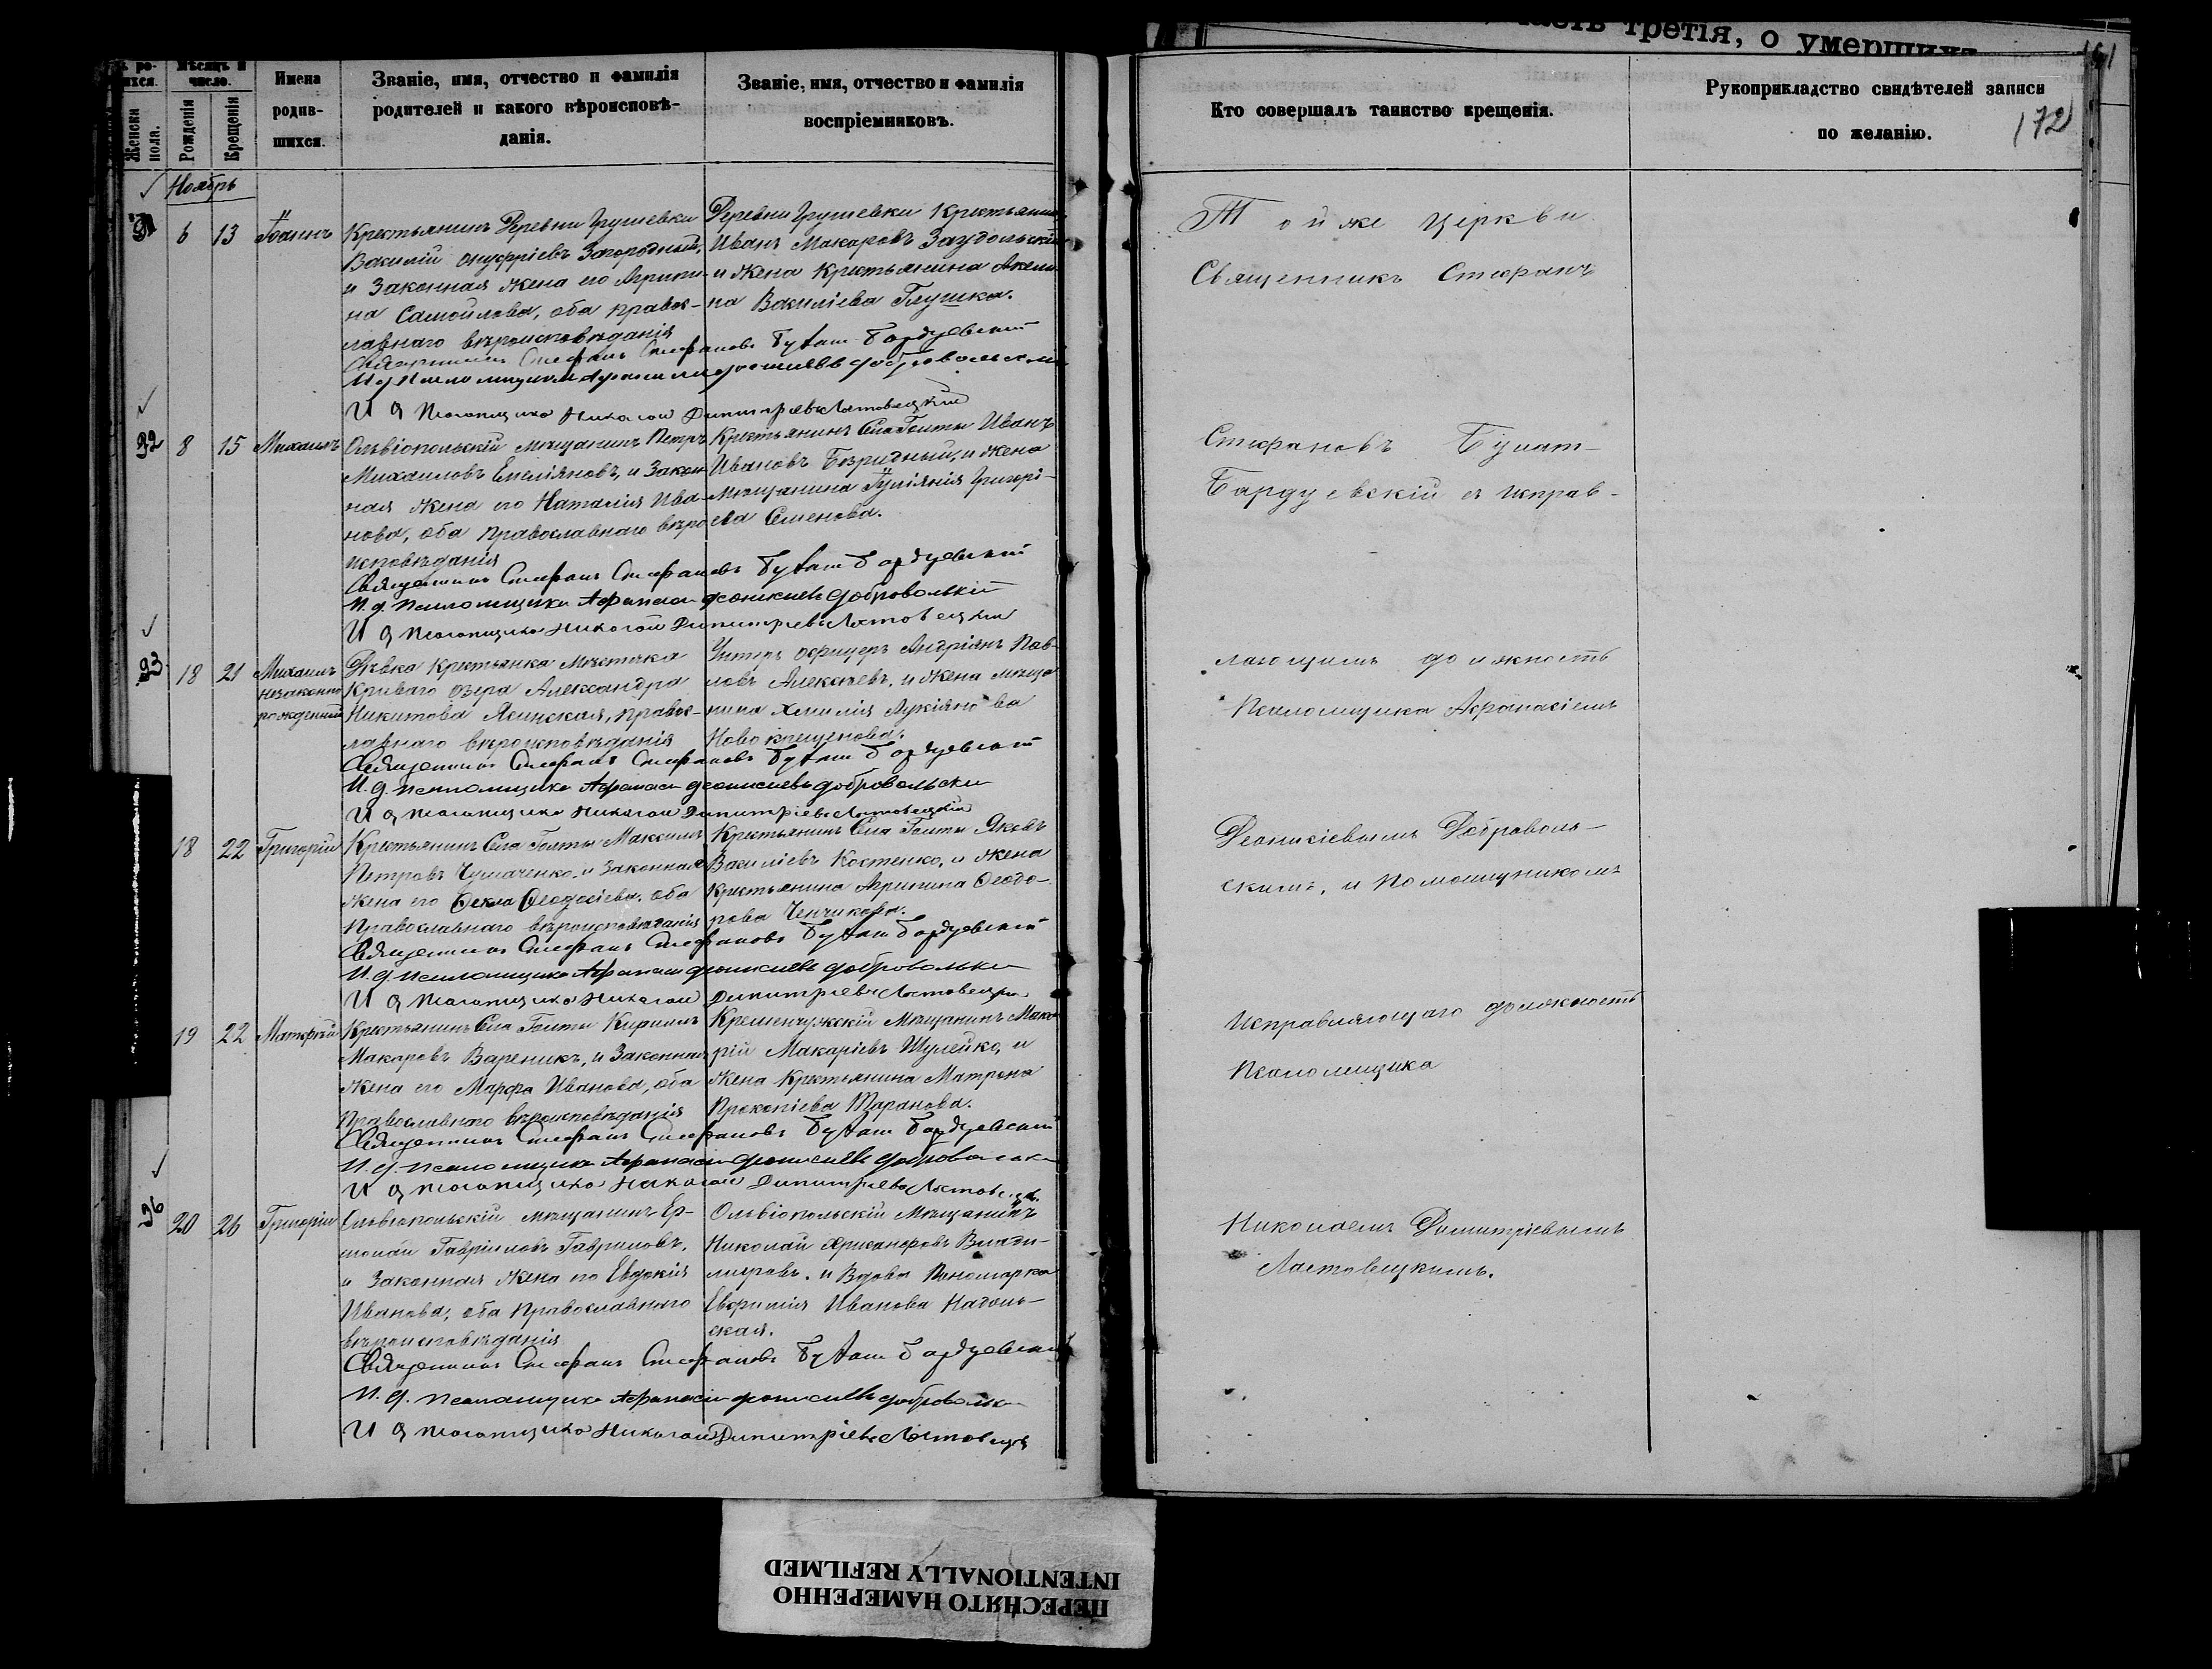 ихся.
Мѣсяцъ и число.
Женска пола.
Рожденія
Крещенія
Имена родив-
шихся.
Званіе, имя, отчество и фамилія
родителей и какого вѣроисповѣ-
данія.
Званіе, имя, отчество и фамилія
воспріемниковъ.
Ноябрь
6 13 Іоаннъ
Крестьянинъ Деревни Грушевки
Василій Онуфріевъ Загородный,
и Законная жена его Агрипи-
на Самойлова, оба правос-
лавнаго вѣроисповѣданія
Деревни Грушевки Крестьянинъ
Иванъ Макаровъ
и жена Крестьянина Акели-
на Василіева Глушка.
Священникъ Стефанъ Стефановъ Булат Бардуевскій
И. д. Псаломщика Афанасій Деонисіевъ Добровольскій
И д Псаломщика Николай Димитріевъ Ластовецкій
32 8 15 Михаилъ
Ольвіопольскій мѣщанинъ Петръ
Михаиловъ Емеліяновъ, и Закон-
ная жена его Наталія Ива-
нова, оба православнаго вѣро
исповѣданія
Крестьянинъ Села Голты Иванъ
Ивановъ Безридный, и жена
Мѣщанина Іуліянія Григорі-
ева Семенова.
Священникъ Стефанъ Стефановъ Булат Бардуевскій
И. д. Псаломщика Афанасій Деонисіевъ Добровольскій
И д Псаломщика Николай Димитріевъ Ластовецкій
33 18 21 Михаилъ
незаконно
рожденный
Дѣвка Крестьянка Мѣстечка
Криваго озера Александра
Никитова Ясинская, правос-
лавнаго вѣроисповѣданія
Унтеръ офицеръ Андріянъ Пав-
ловъ Алексѣевъ, и жена мѣща
нина Лукіянова
Новокрещенова.
Священникъ Стефанъ Стефановъ Булат Бардуевскій
И. д. Псаломщика Афанасій Деонисіевъ Добровольскій
И д Псаломщика Николай Димитріевъ Ластовецкій
18 22 Григорій
Крестьянинъ Села Голты Максимъ
Петровъ Чумаченко, и Законная
жена его Ѳекла Ѳеодосіева, оба
Православнаго вѣроисповѣданія
Крестьянинъ Села Голты Яковъ
Василіевъ Костенко, и жена
Крестьянина Агрипина Ѳеодо-
рова Ченчикова.
Священникъ Стефанъ Стефановъ Булат Бардуевскій
И. д. Псаломщика Афанасій Деонисіевъ Добровольскій
И д Псаломщика Николай Димитріевъ Ластовецкій
19 22 Матфей
Крестьянинъ Села Голты Кириллъ
Макаровъ Вареникъ, и Законная
жена его Марфа Иванова, оба
Православнаго вѣроисповѣданія
Кременчужскій Мѣщанинъ Мака
рій Макаріевъ Шулейко, и
жена Крестьянина Матрона
Прокопіева Таранова.
Священникъ Стефанъ Стефановъ Булат Бардуевскій
И. д. Псаломщика Афанасій Деонисіевъ Добровольскій
И д Псаломщика Николай Димитріевъ Ластовецкій
36 20 26 Григорій
Ольвіопольскій мѣщанинъ Ер-
молай Гавріиловъ Гавриловъ,
и Законная жена его Евдокія
Иванова, оба Православнаго
вѣроисповѣданія
Ольвіопольскій Мѣщанинъ
Николай Влади-
міровъ, и Вдова Пономарка
Евфимія Иванова Надоль-
ская.
Священникъ Стефанъ Стефановъ Булат Бардуевскій
И. д. Псаломщика Афанасій Деонисіевъ Добровольскій
И д Псаломщика Николай Димитріевъ Ластовецкій
Часть третія, о умершихъ
161
172
Кто совершалъ таинство крещенія.
Рукоприкладство свидѣтелей записи
по желанію.
Тойже Церкви
Священникъ Стефанъ
Стефановъ Булат-
Бардуевскій съ исправ-
ляющимъ должность
Псаломщика Афанасіемъ
Деонисіевымъ Доброволь-
скимъ, и помощникомъ
Исправляющаго должность
Псаломщика
Николаемъ Димитріевымъ
Ластовецкимъ.
ПЕРЕСНЯТО НАМЕРЕННО
INTENTIONALLY REFILMED